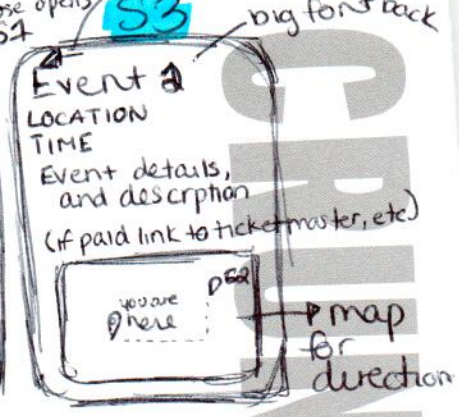 ose opens
S1
S3
big font back
Event 2
LOCATION
TIME
Event details,
and descrption
(if paid link to ticketmaster, etc)
you are
here
map
for
direction
CRUN